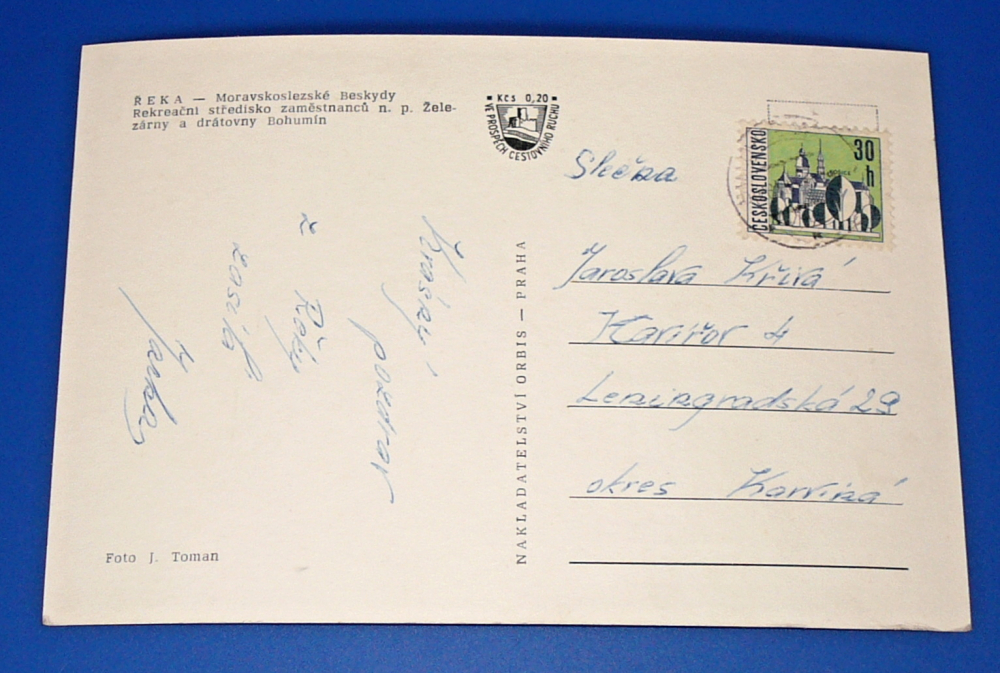 ŘEKA — Moravskoslezské Beskydy
Rekreační středisko zaměstnanců n. p. Žele-
zárny a drátovny Bohumín
Kčs 0,20
VE PROSPĚCH CESTOVNÍHO RUCHU
ČESKOSLOVENSKO
30
h
Krásný
pozdrav
z Řeky
zasílá
Foto J. Toman
NAKLADATELSTVÍ ORBIS — PRAHA
Slečna
Jaroslava Křivá
Havířov 4
Leningradská 29
okres Karviná